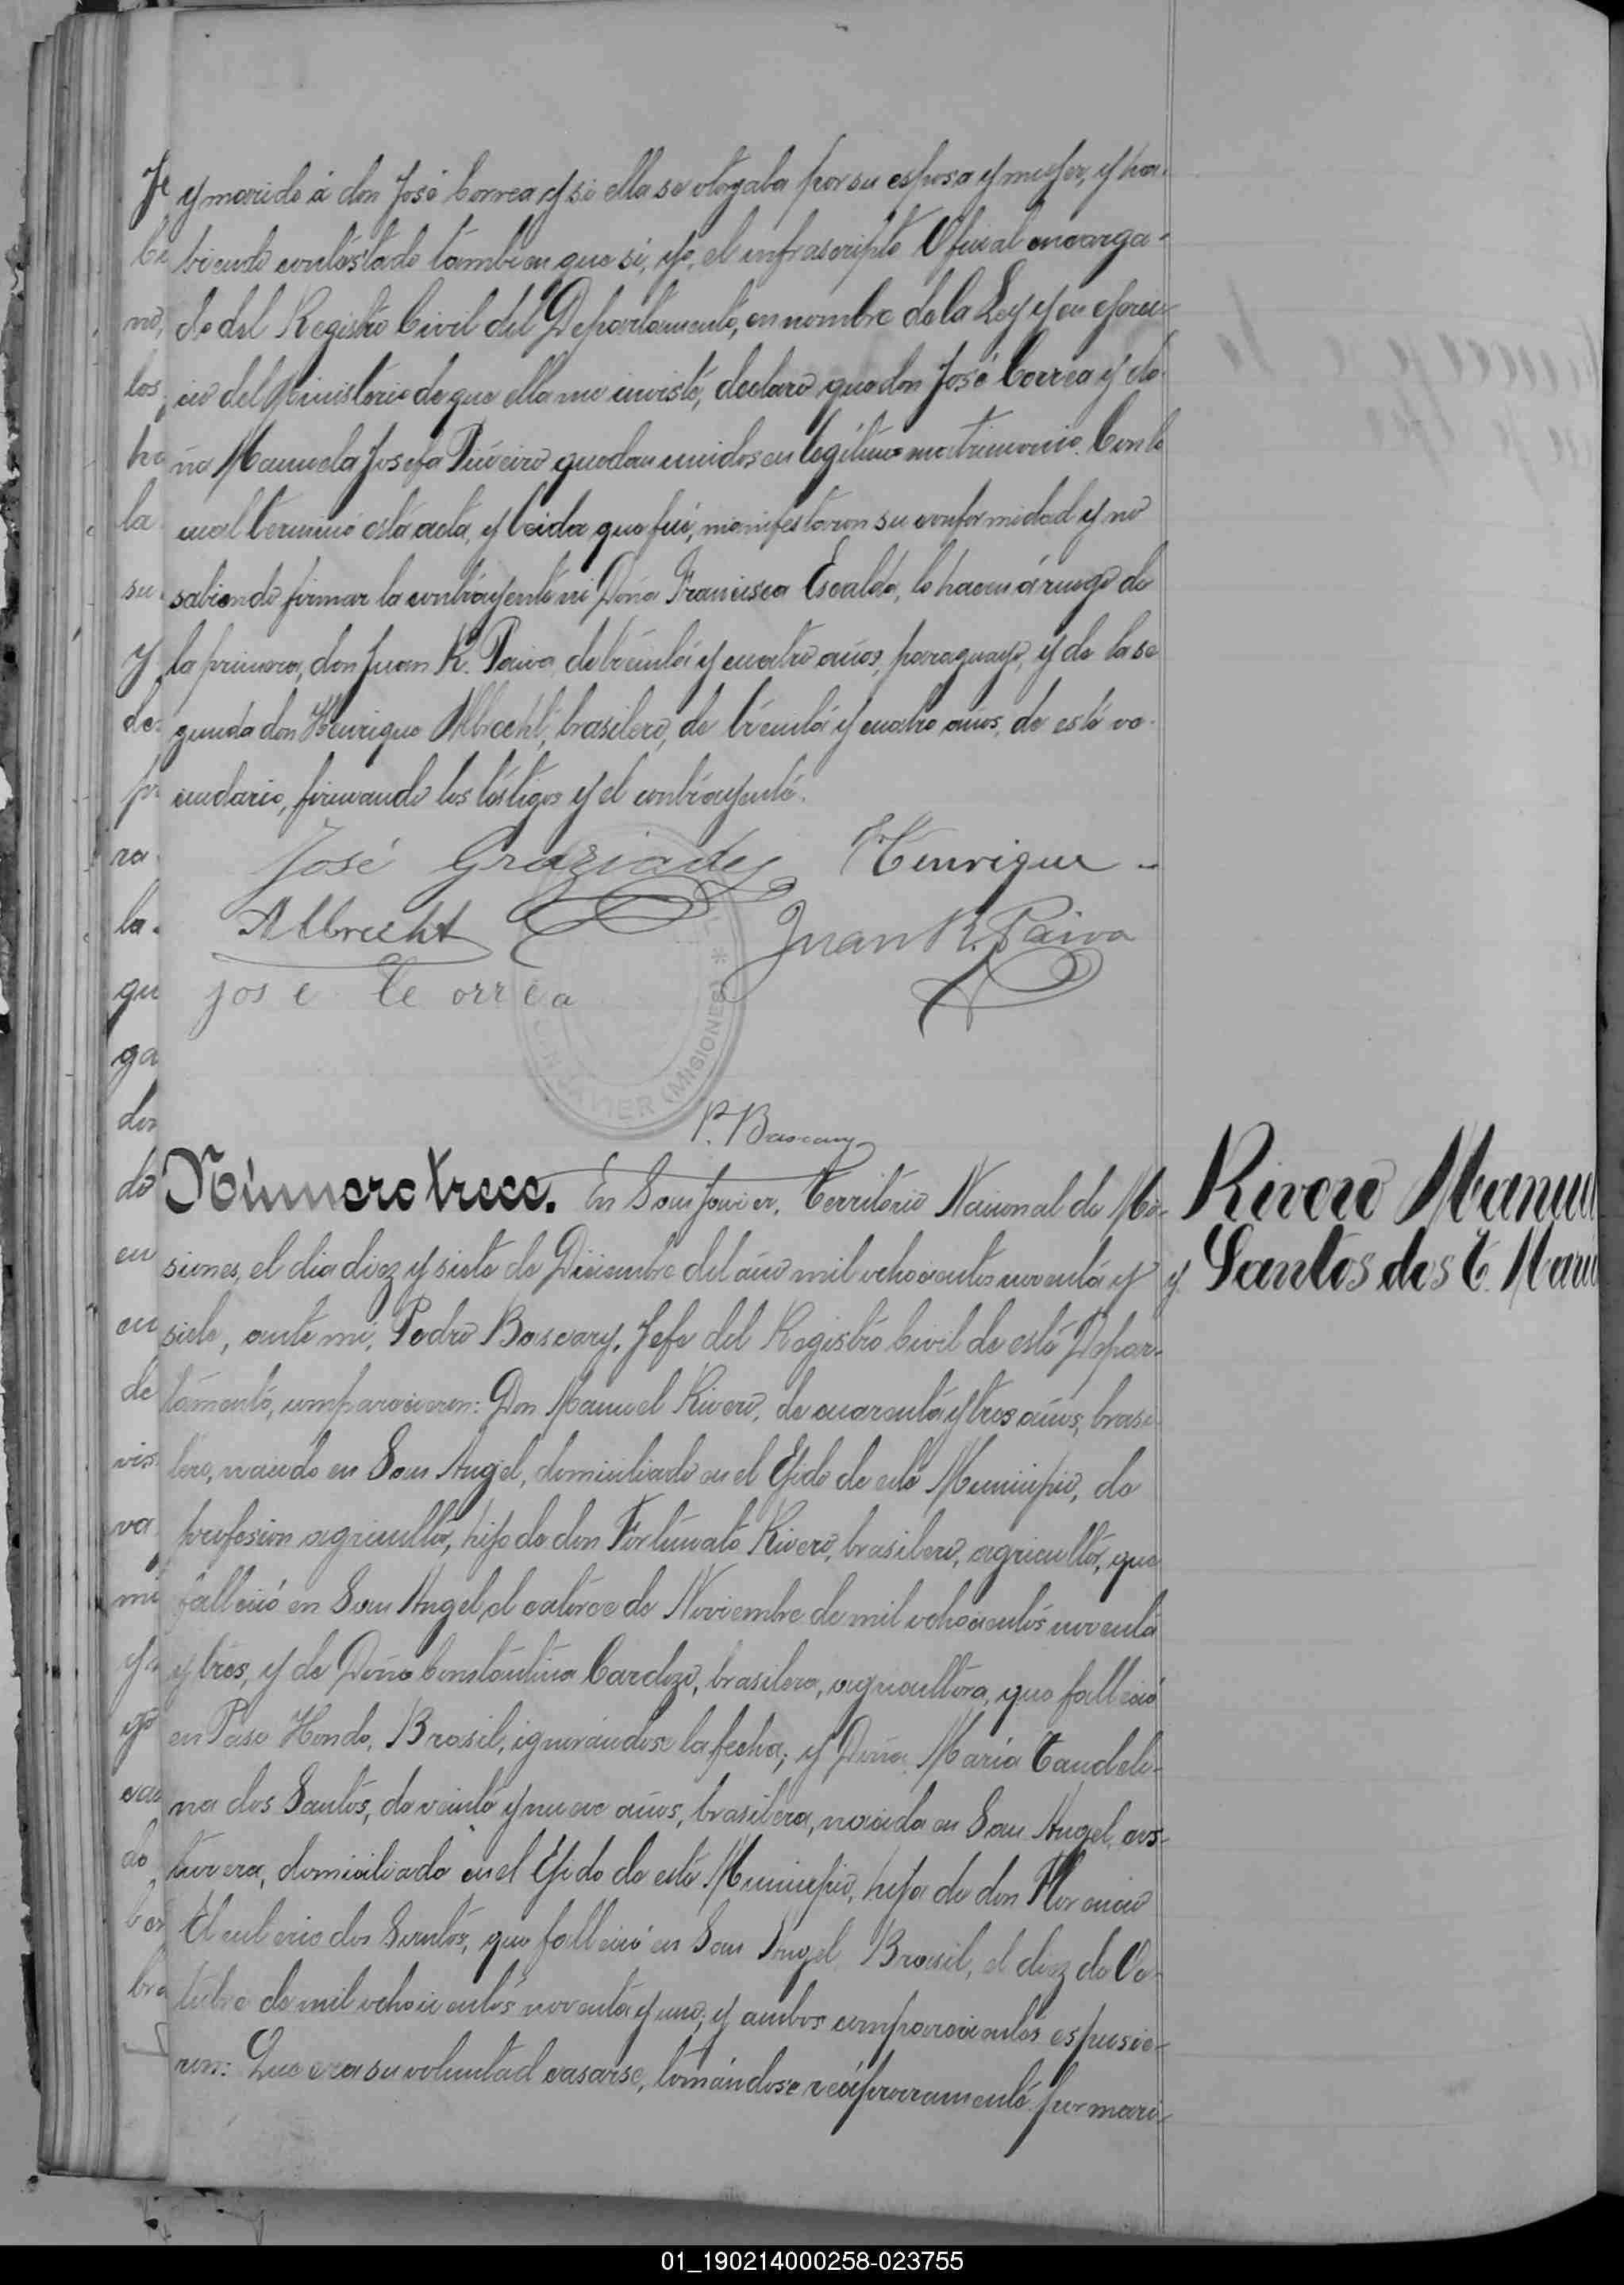 y marido á don José Correa y si ella se otorgaba por su esposa y mujer, y ha-
biendo contestado tambien que si, yo, el infrascripto Oficial encarga-
do del Registro Civil del Departamento, en nombre de la Ley y en ejerci-
cio del Ministerio de que ella me inviste, declaro que don José Correa y do-
ña Manuela Josefa quedan unidos en legitimo matrimonio. Con lo
cual terminó esta acta, y leida que fué, manifestaron su conformidad y no
sabiendo firmar la contrayente ni Doña Francisca Escalda, lo hacen á ruego de
la primera, don Juan R. Paiva, de treinta y cuatro años, paraguayo, y de la se
gunda don Henrique Albrecht, brasilero, de treinta y cuatro años, de este ve-
cindario, firmando los testigos y el contrayente.
José Graziadey Henrique -
Albrecht Juan R. Paiva
jose Correa
SAN JAVIER (MISIONES) *
P. Bascary
Número trece. En San Javier, Territorio Nacional de Mi-
siones, el dia diez y siete de Diciembre del año mil ochocientos noventa y
siete, ante mi, Pedro Bascary, Jefe del Registro Civil de este Depar-
tamento, comparecieron: Don Manuel Rivero, de cuarenta y tres años, brasi-
lero, nacido en San Angel, domiciliado en el Ejido de este Municipio, de
profesion agricultor, hijo de don Fortunato Rivero, brasilero, agricultor, que
falleció en San Angel el catorce de Noviembre de mil ochocientos noventa
y tres, y de Doña Constantina Cardozo, brasilera, agricultora, que falleció
en Paso Hondo, Brasil, ignorándose la fecha; y Doña Maria Caudeli-
na dos Santos, de veinte y nueve años, brasilera, nacida en San Angel, cos-
turera, domiciliada en el Ejido de este Municipio, hija de don Florencio
Eleuterio dos Santos, que falleció en San Angel, Brasil, el diez de Oc-
tubre de mil ochocientos noventa y uno; y ambos comparecientes espusie-
ron: Que era su voluntad casarse, tomándose reciprocamente por mari-
Rivero Manuel
y Santos dos C. Maria
01_190214000258-023755